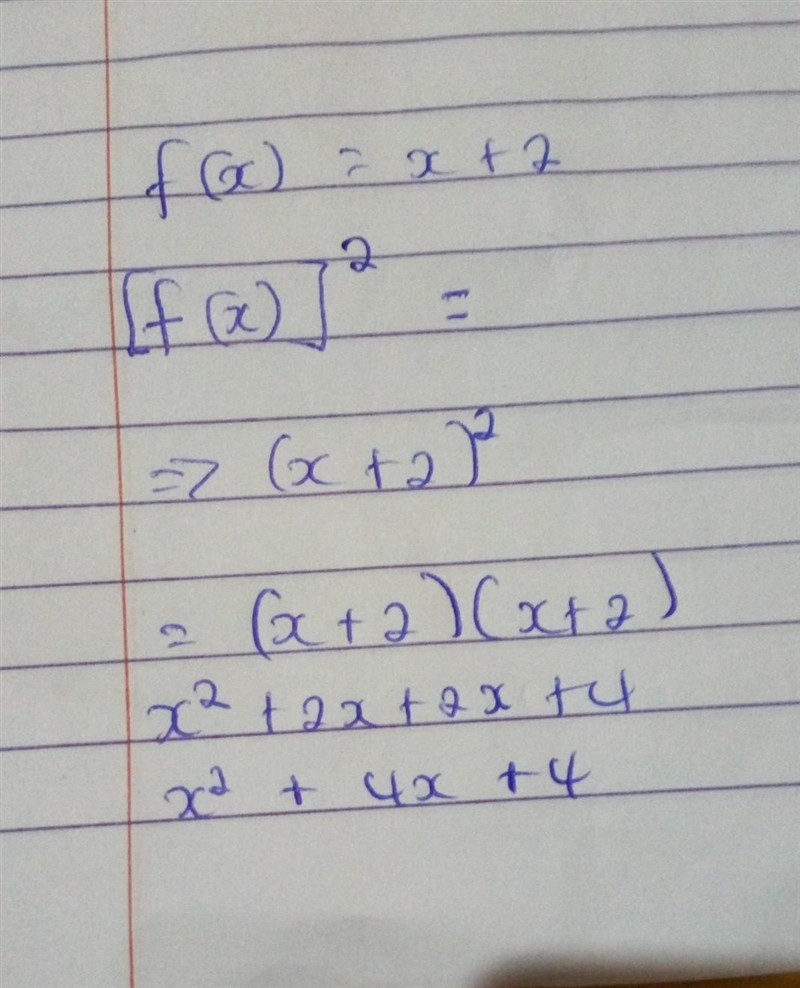 f(x) = x + 2
[f(x)]² =
=> (x + 2)²
= (x + 2)(x + 2)
x² + 2x + 2x + 4
x² + 4x + 4